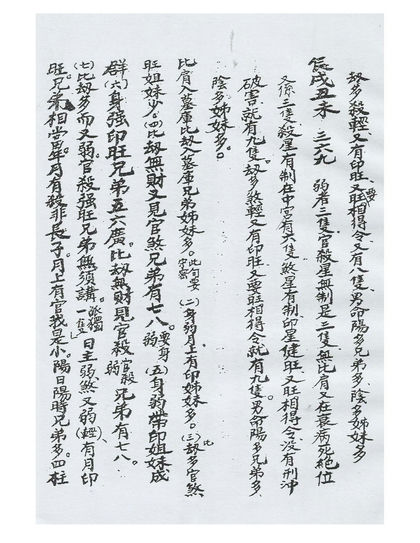 劫多殺輕、又有印旺、又要旺相得令、又有八隻、男命陽多兄弟多、陰多姊妹多
辰戌丑未 三六九 弱者三隻、官殺星無制是三隻、無比肩又在衰病死絕位
又係三隻、殺星有制在中宮有六隻、煞星有制、印星健旺又旺相得令、没有刑冲
破害就有九隻、劫多煞輕又有印旺又要旺相得令就有九隻。男命陽多兄弟多、
陰多姊妹多。
比肩入墓庫、比劫入墓庫、兄弟姊妹多。此句要守密 (二)身弱月上有印姊妹多。(三)比劫多官煞
旺姐妹少。(四)比劫無財又見官煞兄弟有七八。要身弱 (五)身弱帶印姐妹成
群(六)身强印旺兄弟五六廣。比劫無財見官殺官殺弱兄弟有七八。
(七)比劫多而又弱、官殺强旺兄弟無須講。派獨一隻 日主弱煞又弱(輕)、有月印
旺、兄弟相當、年月有破非長子、月上有官我是小。陽日陽時兄弟多、四柱